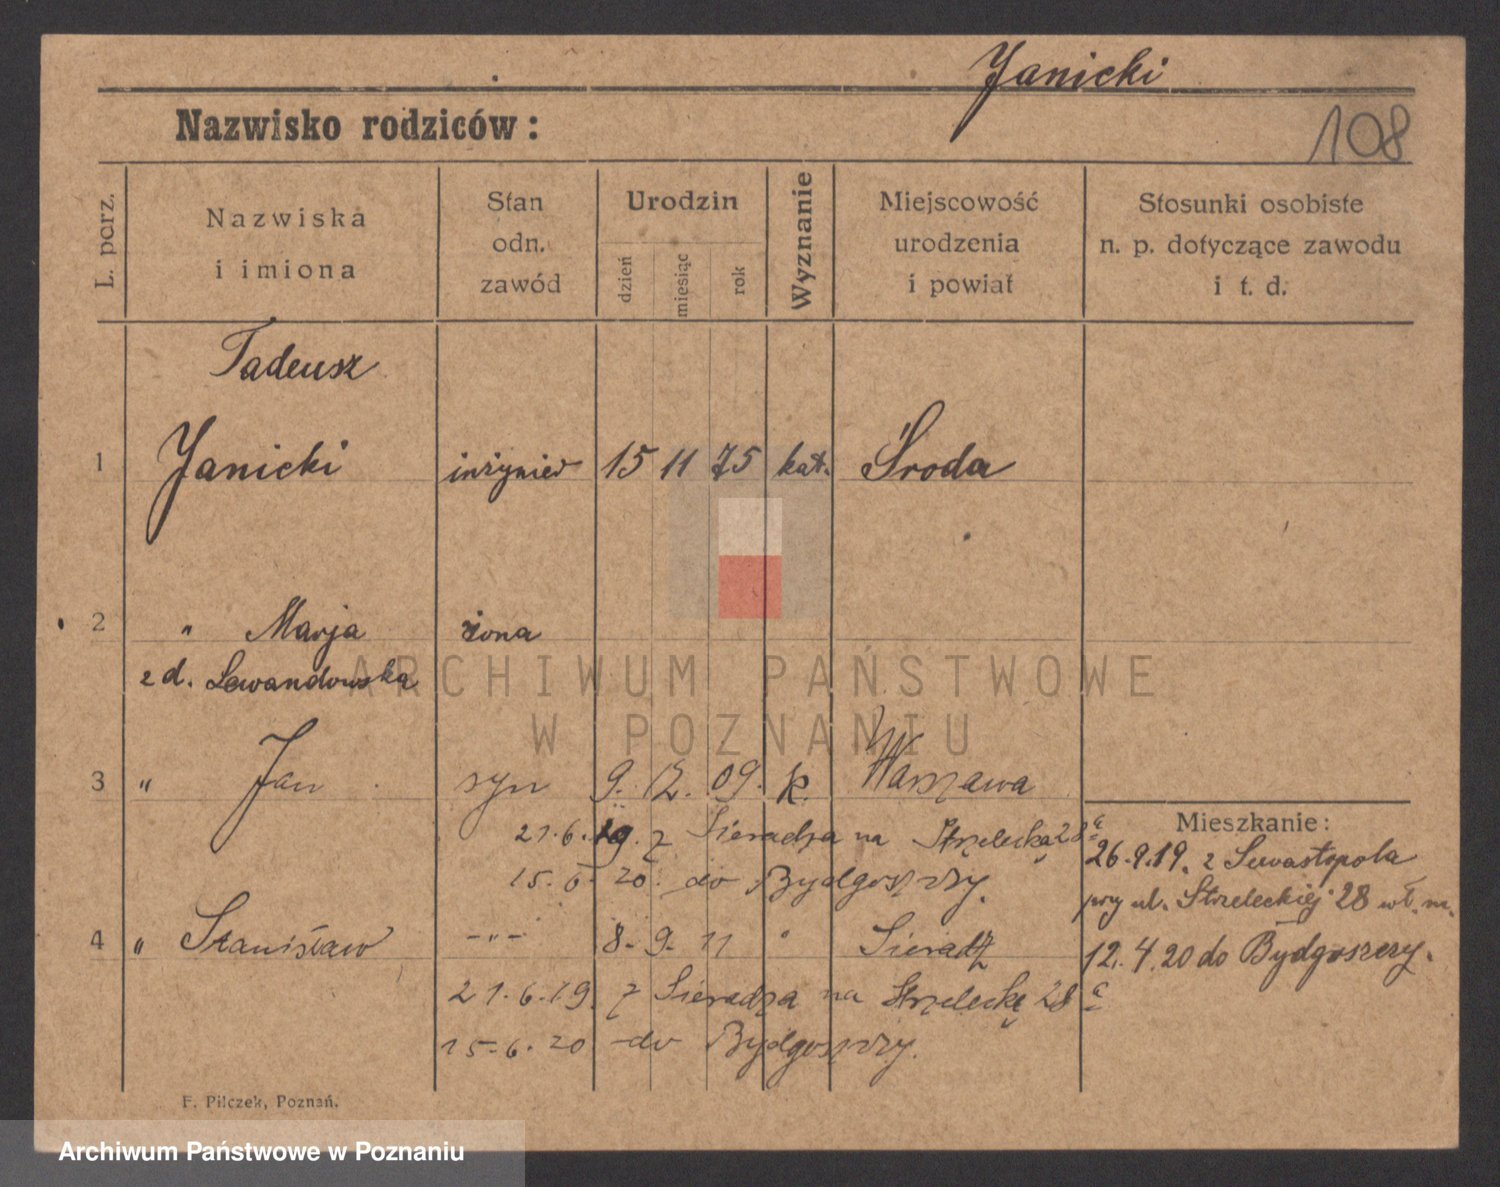 Janicki
Nazwisko rodziców:
108
L. porz.
Nazwiska
i imiona
Stan
odn.
zawód
Urodzin
dzień
miesiąc
rok
Wyznanie
Miejscowość
urodzenia
i powiat
Stosunki osobiste
n. p. dotyczące zawodu
i t. d.
Tadeusz
1 Janicki inżynier 15 11 75 kat. Środa
2 " Marja żona
z d. Lewandowska
3 " Jan syn 9. 12. 09. k. Warszawa
21.6.19. z Sieradza na Strzelecką 28a
15.6.20. do Bydgoszczy.
4 " Stanisław -"- 8. 9. 11 " Sieradz
21.6.19. z Sieradza na Strzelecką 28a
15.6.20 do Bydgoszczy.
Mieszkanie:
26.9.19. z Sewastopola
przy ul. Strzeleckiej 28 wł. m.
12.4.20 do Bydgoszczy.
F. Pilczek, Poznań.
ARCHIWUM PAŃSTWOWE
W POZNANIU
Archiwum Państwowe w Poznaniu